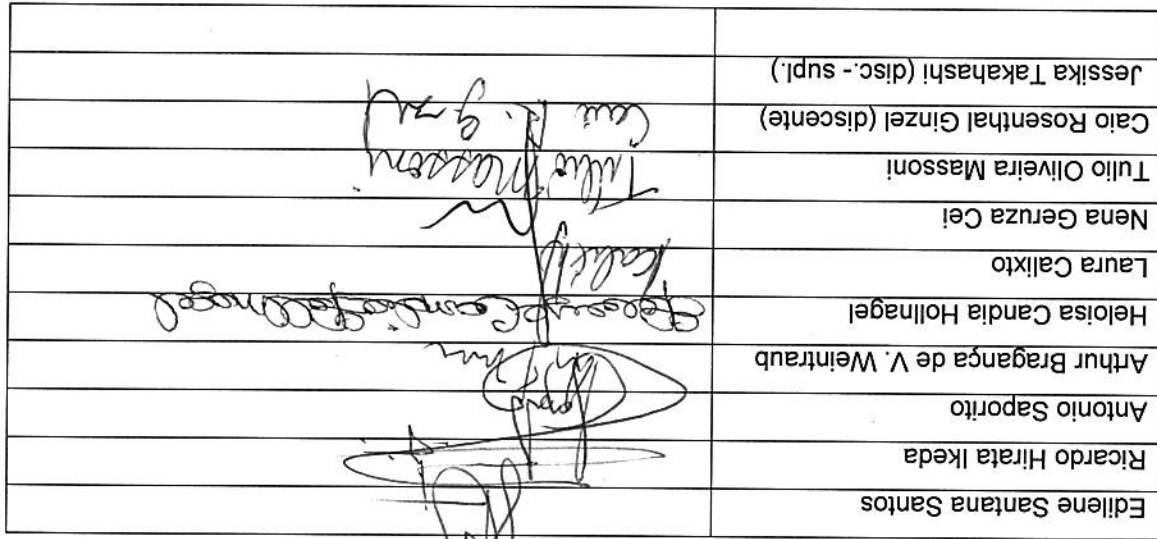 Edilene Santana Santos
Ricardo Hirata Ikeda
Antonio Saporito
Arthur Bragança de V. Weintraub
Heloisa Candia Hollnagel Heloisa Candia Hollnagel
Laura Calixto
Nena Geruza Cei
Tulio Oliveira Massoni Túlio Massoni
Caio Rosenthal Ginzel (discente)
Jessika Takahashi (disc.- supl.)